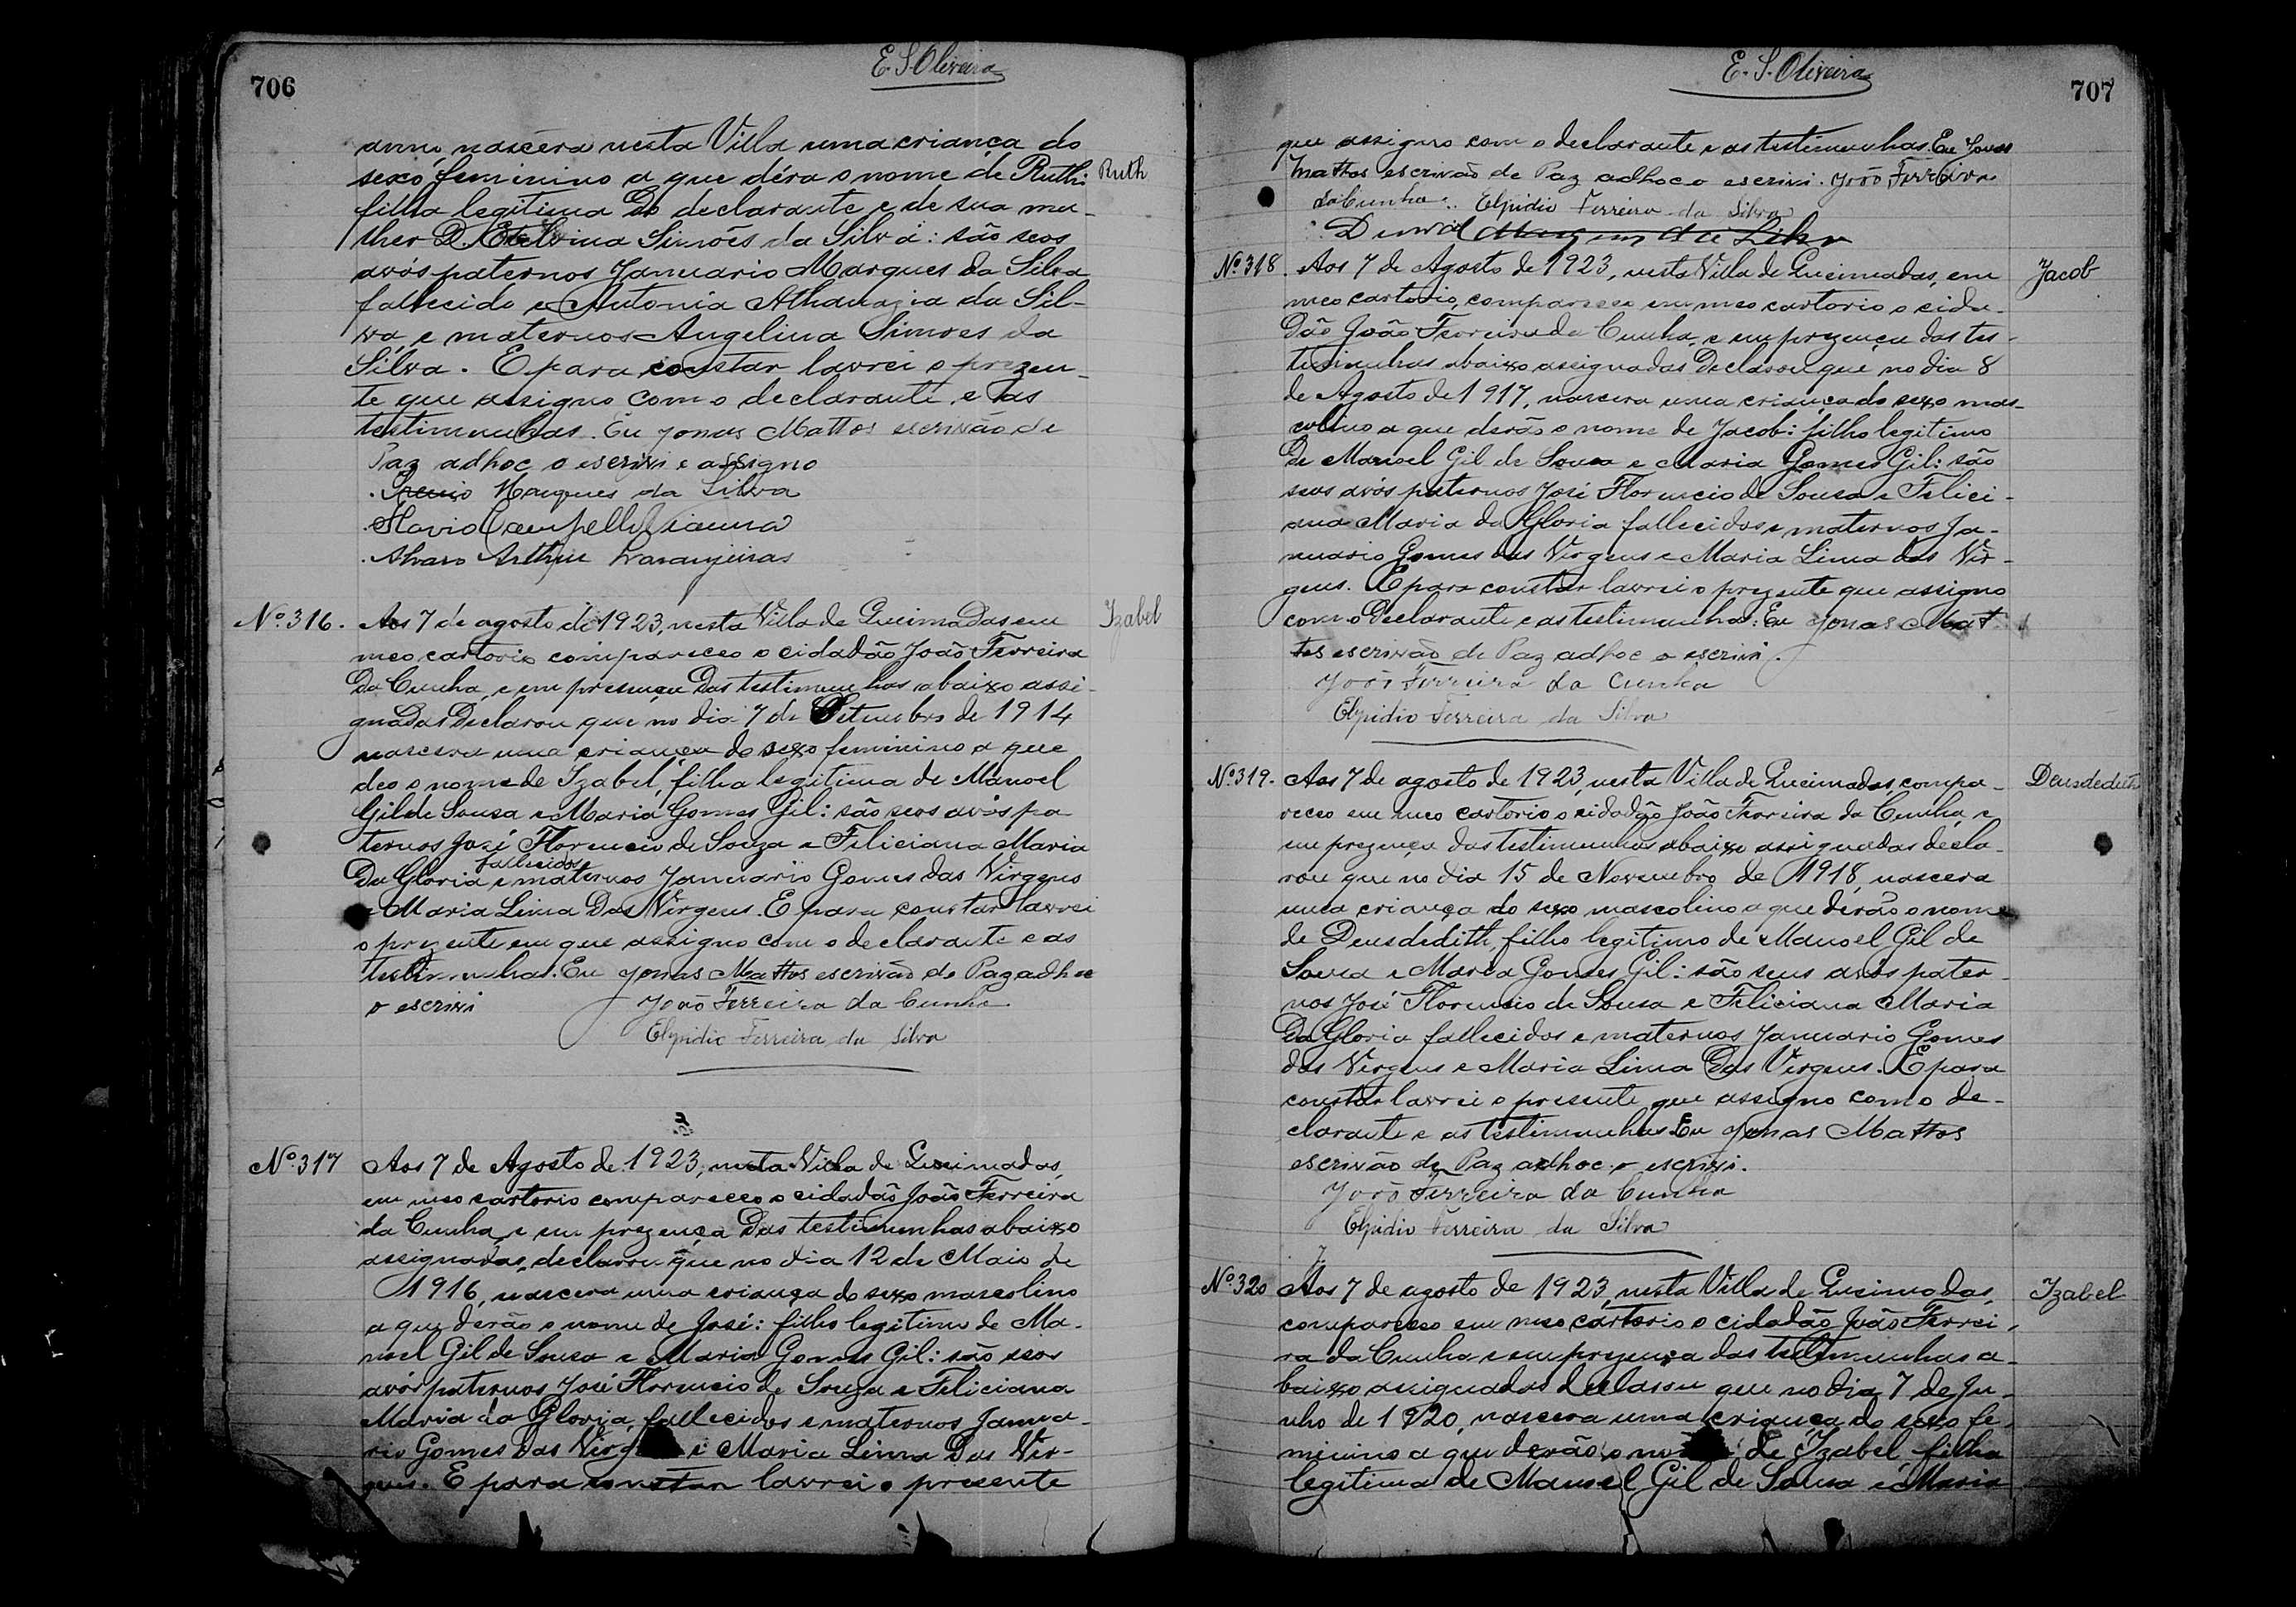 706
E. S. Oliveira
anno, nascera nesta Villa uma criança do
sexo feminino a que déra o nome de Ruth:
Ruth
filha legitima do declarante e de sua mu-
lher D. Etelvina Simões da Silva: são seos
avós paternos Januario Marques da Silva
fallecido e Antonia Athanazia da Sil-
va, e maternos Angelina Simoes da
Silva. E para constar lavrei o prezen-
te que assigno com o declarante e as
testimunhas. Eu Jonas Mattos escrivão de
Paz adhoc o escrivi e assigno
Marques da Silva
Flavio Campello Vianna
Alvaro Arthur Laranjeiras
Nº 316. Aos 7 de agosto de 1923, nesta Villa de Queimadas em
Izabel
meo cartorio compareceo o cidadão João Ferreira
da Cunha, e em presença das testimunhas abaixo assi-
gnadas declarou que no dia 7 de Setembro de 1914
nascera uma criança do sexo feminino a que
deo o nome de Izabel, filha legitima de Manoel
Gil de Sousa e Maria Gomes Gil: são seos avós pa
ternos José Florencio de Souza e Feliciana Maria
fallecidos
da Gloria e maternos Januario Gomes das Virgens
e Maria Lima das Virgens. E para constar lavrei
o prezente em que assigno com o declarante e as
testimunhas. Eu Jonas Mattos escrivão de Paz adhoc
o escrivi João Ferreira da Cunha
Elpidio Ferreira da Silva
Nº 317 Aos 7 de Agosto de 1923, nesta Villa de Queimadas,
em meo cartorio compareceo o cidadão João Ferreira
da Cunha, e em prezença das testimunhas abaixo
assignadas, declarou que no dia 12 de Maio de
1916, nascera uma criança do sexo mascolino
a que derão o nome de José: filho legitimo de Ma-
noel Gil de Sousa e Maria Gomes Gil: são seos
avós paternos José Florencio de Souza e Feliciana
Maria da Gloria, fallecidos e maternos Janua-
rio Gomes das e Maria Lima das Vir-
gens. E para constar lavrei o presente
E. S. Oliveira
707
que assigno com o declarante e as testimunhas. Eu Jonas
Mattos escrivão de Paz adhoc o escrivi. João Ferreira
da Cunha. Elpidio Ferreira da Silva
Nº 318. Aos 7 de Agosto de 1923, nesta Villa de Queimadas, em
Jacob
meo cartorio, compareceo em meo cartorio o cida-
dão João Ferreira da Cunha, e em prezença das tes-
timunhas abaixo assignadas declarou que no dia 8
de Agosto de 1917, nascera uma criança do sexo mas-
colino a que derão o nome de Jacob: filho legitimo
de Manoel Gil de Sousa e Maria Gomes Gil: são
seos avós paternos José Florencio de Sousa e Felici-
ana Maria da Gloria fallecidos e maternos Ja-
nuario Gomes das Virgens e Maria Lima das Vir-
gens. E para constar lavrei o prezente que assigno
com o declarante e as testimunhas: Eu Jonas Mat-
tos escrivão de Paz adhoc o escrivi.
João Ferreira da Cunha
Elpidio Ferreira da Silva
Nº 319. Aos 7 de agosto de 1923, nesta Villa de Queimadas, compa-
Deusdedith
receo em meo cartorio o cidadão João Ferreira da Cunha, e
em prezença das testimunhas abaixo assignadas decla-
rou que no dia 15 de Novembro de 1918, nascera
uma criança do sexo mascolino a que derão o nome
de Deusdedith, filho legitimo de Manoel Gil de
Sousa e Maria Gomes Gil: são seus avós pater-
nos José Florencio de Sousa e Feliciana Maria
da Gloria fallecidos e maternos Januario Gomes
das Virgens e Maria Lima das Virgens. E para
constar lavrei o presente que assigno com o de-
clarante e as testimunhas. Eu Jonas Mattos
escrivão de Paz adhoc o escrivi.
João Ferreira da Cunha
Elpidio Ferreira da Silva
Nº 320 Aos 7 de agosto de 1923, nesta Villa de Queimadas,
Izabel
compareceo em meo cartorio o cidadão João Ferrei-
ra da Cunha e em prezença das testimunhas a-
baixo assignadas declarou que no dia 7 de Ju-
nho de 1920, nascera uma criança do sexo fe-
minino a que derão o de Izabel, filha
legitima de Manoel Gil de Sousa e Maria